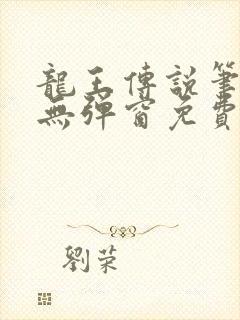 龍王傳說筆
無彈窗免費
劉荣